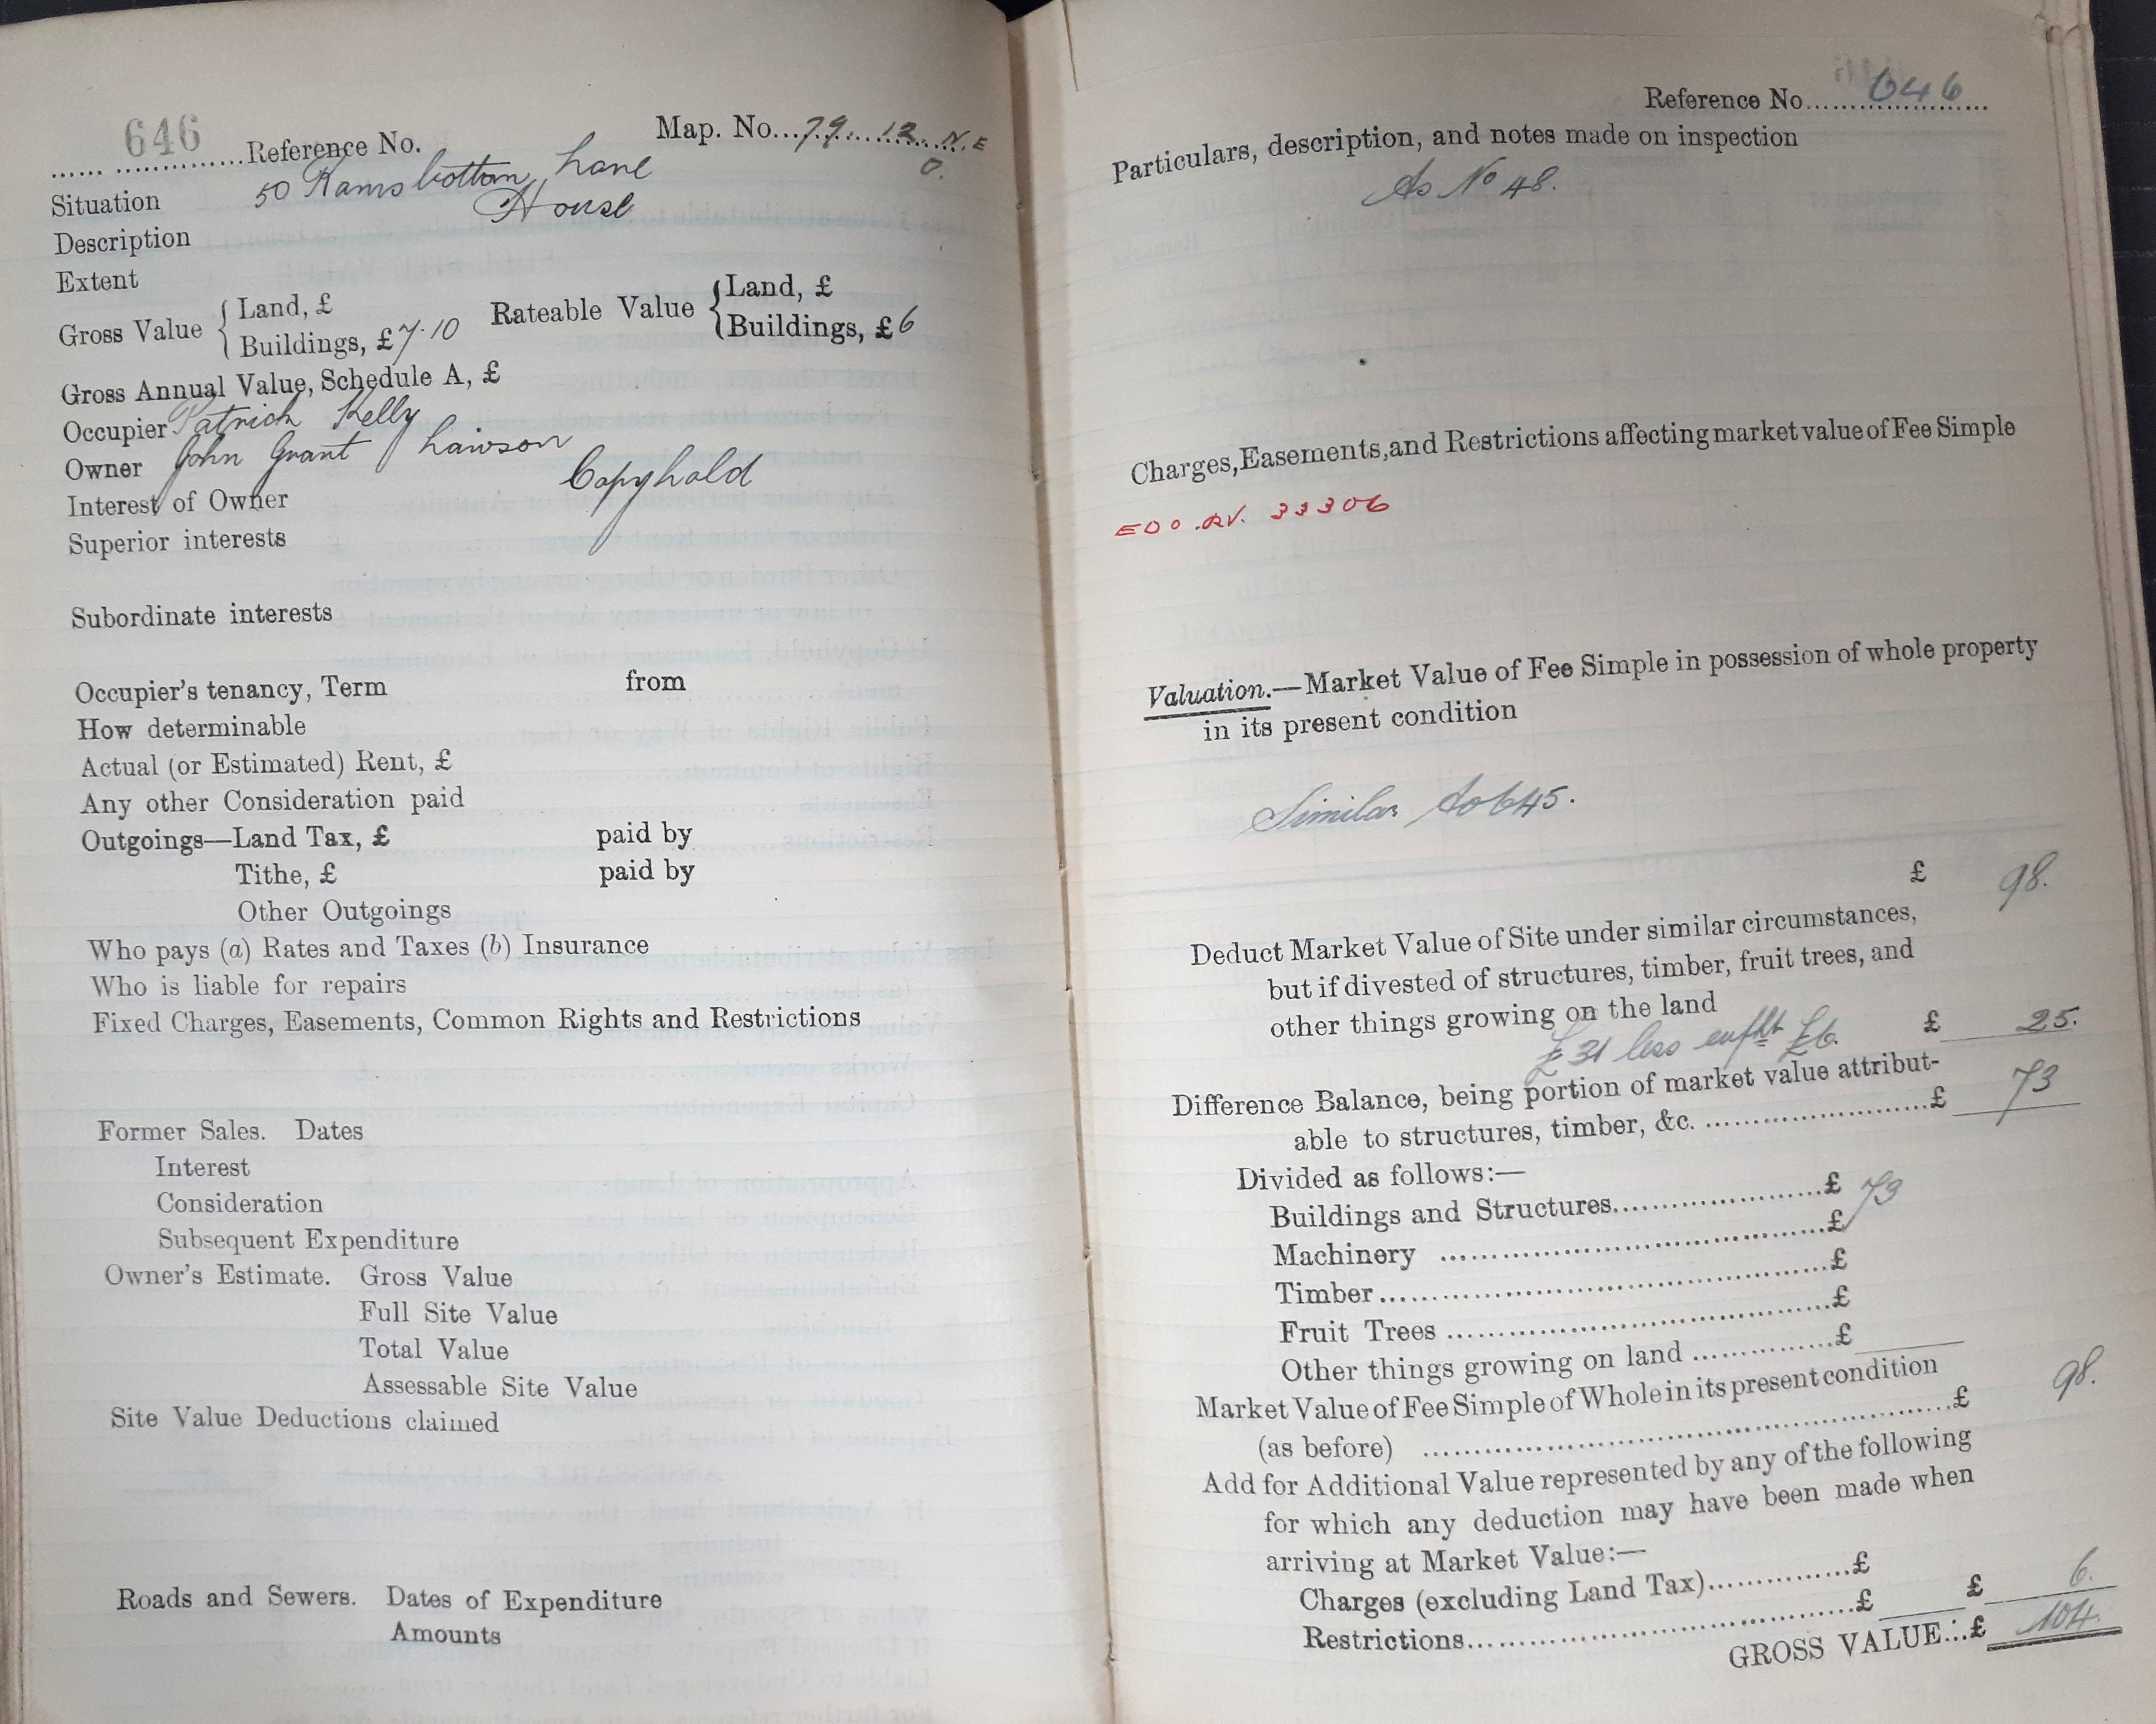 646 Reference No. Map. No. 79. 12. N.E
0.
Situation 50 Ramsbottom Lane
Description House
Extent
Gross Value { Land, £ Rateable Value { Land, £
Buildings, £ 7.10 Buildings, £ 6
Gross Annual Value, Schedule A, £
Occupier Patrick Kelly
Owner John Grant Lawson
Interest of Owner Copyhold
Superior interests
Subordinate interests
Occupier's tenancy, Term from
How determinable
Actual (or Estimated) Rent, £
Any other Consideration paid
Outgoings—Land Tax, £ paid by
Tithe, £ paid by
Other Outgoings
Who pays (a) Rates and Taxes (b) Insurance
Who is liable for repairs
Fixed Charges, Easements, Common Rights and Restrictions
Former Sales. Dates
Interest
Consideration
Subsequent Expenditure
Owner's Estimate. Gross Value
Full Site Value
Total Value
Assessable Site Value
Site Value Deductions claimed
Roads and Sewers. Dates of Expenditure
Amounts
Reference No. 646
Particulars, description, and notes made on inspection
As No 48.
Charges, Easements, and Restrictions affecting market value of Fee Simple
33306
Valuation.—Market Value of Fee Simple in possession of whole property
in its present condition
Similar to 645.
£ 98.
Deduct Market Value of Site under similar circumstances,
but if divested of structures, timber, fruit trees, and
other things growing on the land
£31 less £6. £ 25.
Difference Balance, being portion of market value attribut-
able to structures, timber, &c. £ 73
Divided as follows:—
Buildings and Structures £ 73
Machinery £
Timber £
Fruit Trees £
Other things growing on land £
Market Value of Fee Simple of Whole in its present condition
(as before) £ 98.
Add for Additional Value represented by any of the following
for which any deduction may have been made when
arriving at Market Value:—
Charges (excluding Land Tax) £
Restrictions £ £ 6.
GROSS VALUE £ 104.